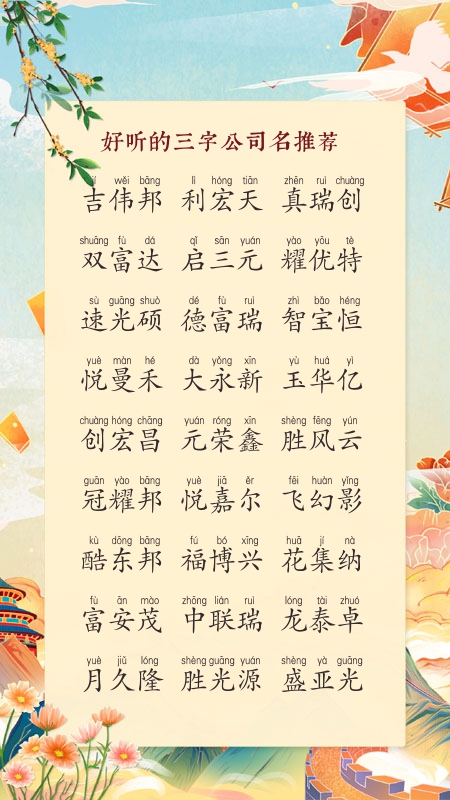 好听的三字公司名推荐
jí wěi bāng lì hóng tiān zhēn ruì chuàng
吉伟邦 利宏天 真瑞创
shuāng fù dá qǐ sān yuán yào yōu tè
双富达 启三元 耀优特
sù guāng shuò dé fù ruì zhì bǎo héng
速光硕 德富瑞 智宝恒
yuè màn hé dà yǒng xīn yù huá yì
悦曼禾 大永新 玉华亿
chuàng hóng chāng yuán róng xīn shèng fēng yún
创宏昌 元荣鑫 胜风云
guān yào bāng yuè jiā ěr fēi huàn yǐng
冠耀邦 悦嘉尔 飞幻影
kù dōng bāng fú bó xīng huā jí nà
酷东邦 福博兴 花集纳
fù ān mào zhōng lián ruì lóng tài zhuó
富安茂 中联瑞 龙泰卓
yuè jiǔ lóng shèng guāng yuán shèng yà guāng
月久隆 胜光源 盛亚光